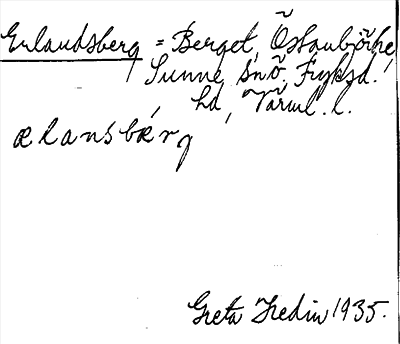 Erlandsberg = Berget, Östanbjörke,
Sunne sn, Fryksd.
hd, Värml. l.
ælansbærg
Greta Hedin 1935.